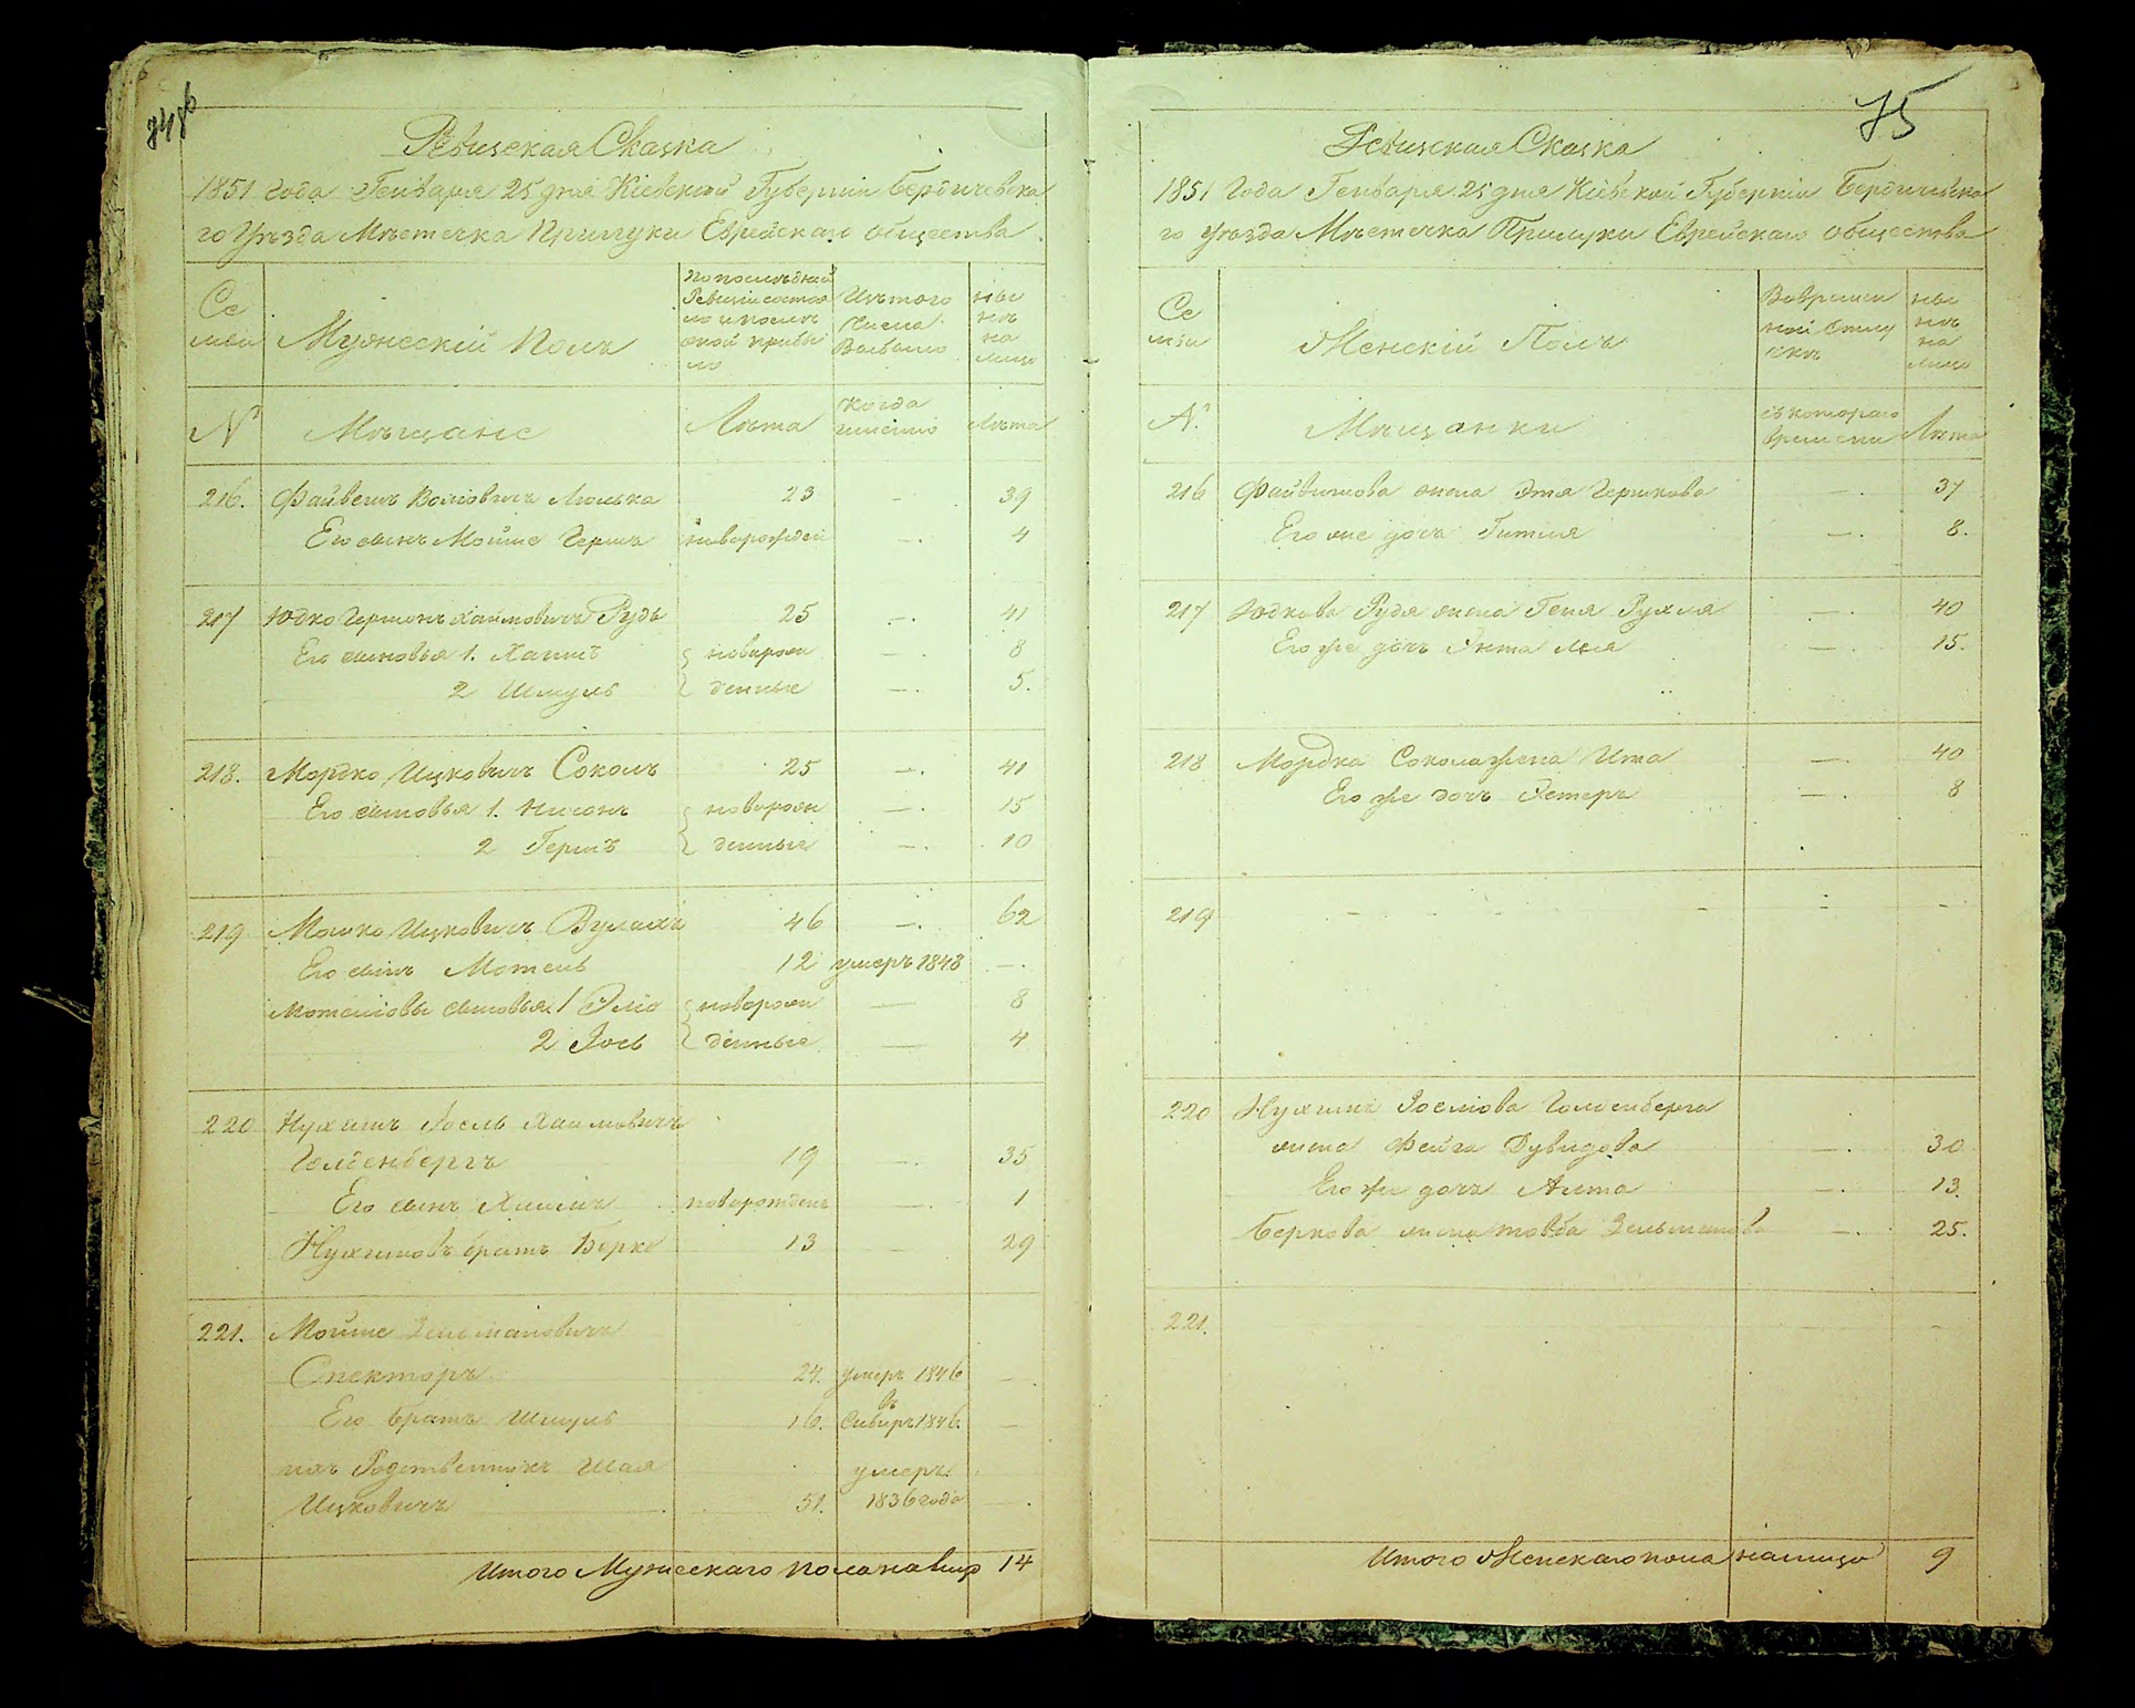 74об
Ревизская Сказка
1851 года Генваря 25 дня Кіевской Губерніи Бердичевска
го Уѣзда Мѣстечка Прилуки Еврейскаго общества
Се
мьи
Мужескій Полъ
По послѣдней
Ревизіи состоя
ло и послѣ
оной прибы
ло
Изъ того
Числа
Выбыло
Ны
нѣ
на
лицо
№
Мѣщане
Лѣта
Когда
именно
Лѣта
216. Файвешъ Волковичъ Люлька 23 — 39
Его сынъ Мойше Гершъ новорожден —. 4
217 Юдко Гершонъ Хаимовичъ Рудь 25 —. 41
Его сыновья 1. Хаимъ новорож —. 8
2 Шмуль денные —. 5.
218. Мордко Ицковичъ Соколъ 25 —. 41
Его сыновья 1. Нисонъ новорож —. 15
2 Гершъ денные —. 10
219 Мошко Ицковичъ 46 —. 62
Его сынъ Мотель 12 умеръ 1848 —.
Мотелювы сыновья 1 Эліо новорож — 8
2 Іось денные — 4
220 Нухимъ Іосель Хаимовичъ
Голденбергъ 19 —. 35
Его сынъ Хаимъ новорожденъ —. 1
Нухимовъ братъ Берко 13 — 29
221. Мойше Зельмановичъ
Спекторъ 24. умеръ 1846 —.
Его братъ Шмуль 16. въ Сибирь 1846. —
ихъ Родственникъ Шая умеръ
Ицковичъ 51. 1836 года —.
Итого Мужескаго пола на лицо 14
75
Ревизская Сказка
1851 Года Генваря 25 дня Кіевской Губерніи Бердичевска
го Уѣзда Мѣстечка Прилуки Еврейскаго общества
Се
мьи
Женскій Полъ
Вовремен
ной отлу
чкѣ
Ны
нѣ
на
лицо
№.
Мѣщанки
съ котораго
времени
Лѣта
216 Файвишова жена Этя Гершкова —. 37
Его же дочь Гитля —. 8.
217 Юдкова Рудя жена Геня Рухля —. 40
Его же дочь Энта Лея —. 15.
218 Мордка Сокола жена Ита —. 40
Его же дочь Эстеръ —. 8
219 — — —
220 Нухима Іоселіова Голденберга
жена Фейга Дувидова —. 30
Его же дочь Алта —. 13.
Беркова жена Товба Зельманова —. 25.
221. — — —
Итого Женскаго пола налицо 9